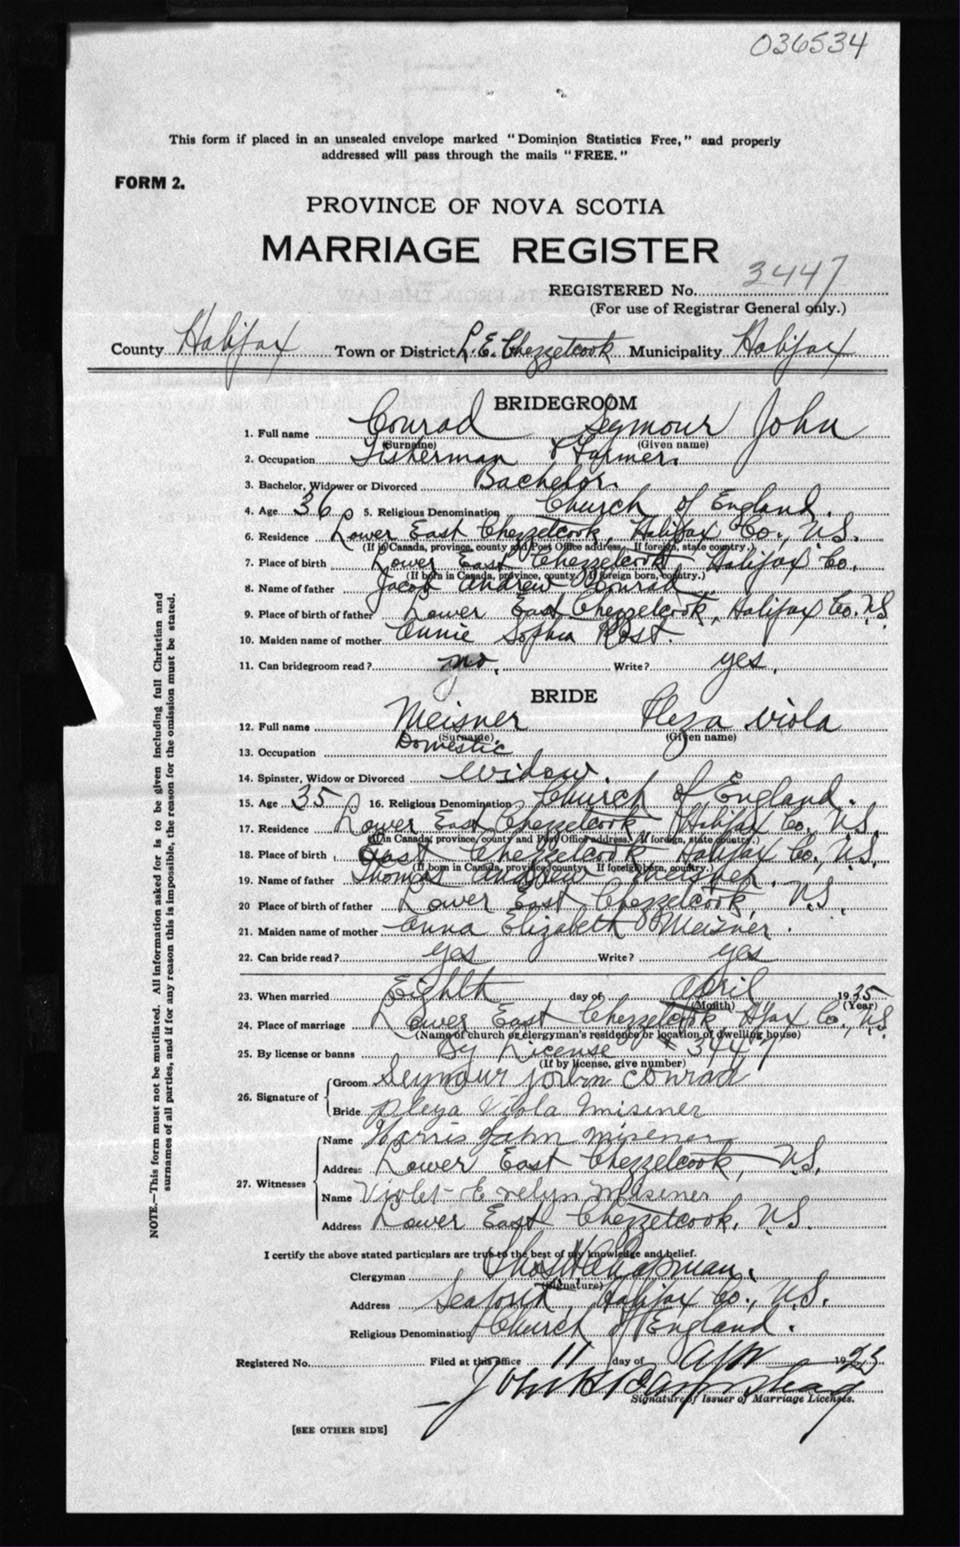 036534
This form if placed in an unsealed envelope marked "Dominion Statistics Free," and properly
addressed will pass through the mails "FREE."
FORM 2.
PROVINCE OF NOVA SCOTIA
MARRIAGE REGISTER
REGISTERED No. 3447
(For use of Registrar General only.)
County Halifax Town or District L. E. Chezzetcook Municipality Halifax
BRIDEGROOM
1. Full name Conrad Seymour John
(Surname) (Given name)
2. Occupation Fisherman & Farmer.
3. Bachelor, Widower or Divorced Bachelor.
4. Age 36 5. Religious Denomination Church of England.
6. Residence Lower East Chezzetcook, Halifax Co., N.S.
(If in Canada, province, county and Post Office address. If foreign, state country.)
7. Place of birth Lower East Chezzetcook Halifax Co.
(If born in Canada, province, county. If foreign born, country.)
8. Name of father Jacob Andrew Conrad
9. Place of birth of father Lower East Chezzetcook, Halifax Co. N.S
10. Maiden name of mother Annie Sophia Rost.
11. Can bridegroom read? no. Write? yes.
BRIDE
12. Full name Meisner Pleza Viola
(Surname) (Given name)
13. Occupation Domestic
14. Spinster, Widow or Divorced Widow.
15. Age 35 16. Religious Denomination Church of England.
17. Residence Lower East Chezzetcook Halifax Co. N.S.
(If in Canada, province, county and Post Office address. If foreign, state country.)
18. Place of birth East Chezzetcook Halifax Co., N.S.
(If born in Canada, province, county. If foreign born, country.)
19. Name of father Thomas Andrew Meisner.
20 Place of birth of father Lower East Chezzetcook, N.S.
21. Maiden name of mother Anna Elizabeth Meisner.
22. Can bride read? yes Write? yes
23. When married Eighth day of April 1935
(Month) (Year)
24. Place of marriage Lower East Chezzetcook, Hfax Co., N.S
(Name of church or clergyman's residence or location of dwelling house)
25. By license or banns By License # 3447
(If by license, give number)
26. Signature of Groom Seymour John Conrad
Bride Pleza Viola Misener
27. Witnesses Name Harris John Misener
Address Lower East Chezzetcook, N.S.
Name Violet Evelyn Misener
Address Lower East Chezzetcook, N.S.
I certify the above stated particulars are true to the best of my knowledge and belief.
Clergyman Thos. H. Chapman.
(Signature)
Address Seaforth, Halifax Co., N.S.
Religious Denomination Church of England.
Registered No. Filed at this office 11 day of Apr 19
John H
Signature of Issuer of Marriage Licenses.
[SEE OTHER SIDE]
NOTE.—This form must not be mutilated. All information asked for is to be given including full Christian and
surnames of all parties, and if for any reason this is impossible, the reason for the omission must be stated.